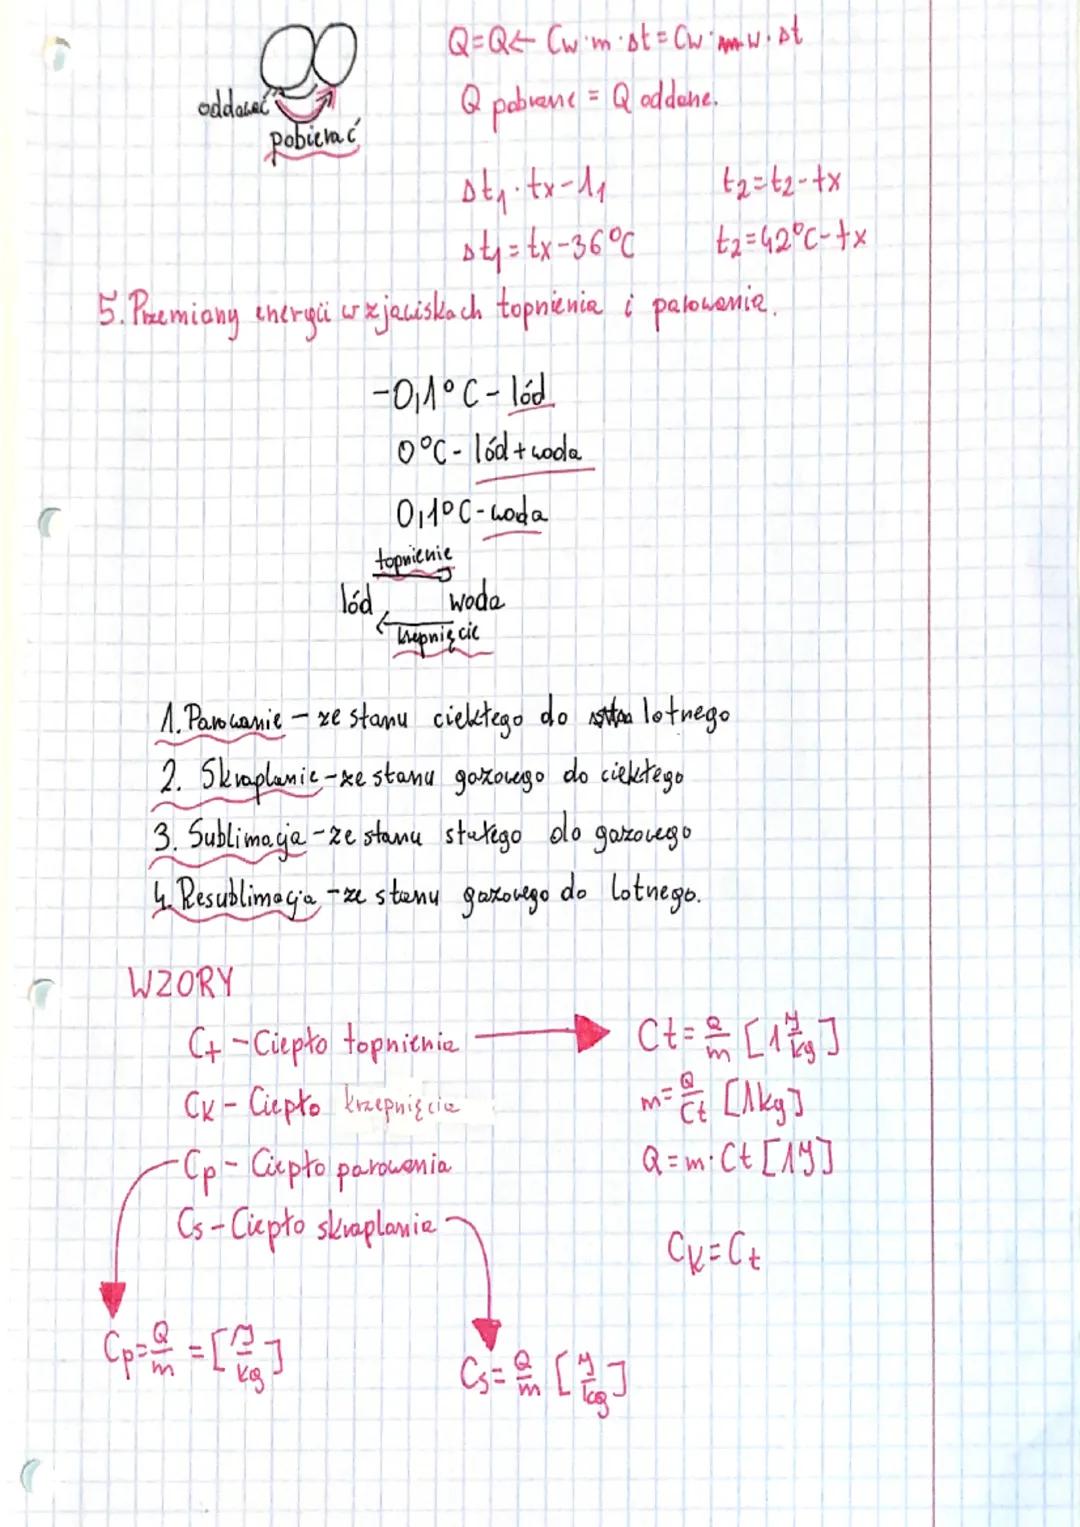 Q=Q← Cw·m·Δt=Cw·m w·Δt
oddawać
pobierać
Q pobrane = Q oddane.
Δt₁·tx-t₁ t₂=t₂-tx
Δt₁=tx-36°C t₂=42°C-tx
5. Przemiany energii w zjawiskach topnienia i parowania.
-0,1°C - lód
0°C - lód + woda
0,1°C - woda
topnienie
lód woda
krzepnięcie
1. Parowanie - ze stanu ciekłego do lotnego
2. Skraplanie - ze stanu gazowego do ciekłego
3. Sublimacja - ze stanu stałego do gazowego
4. Resublimacja - ze stanu gazowego do lotnego.
WZORY
Ct - Ciepło topnienia Ct=Q/m [1 J/kg]
Ck - Ciepło krzepnięcia m=Q/Ct [1kg]
Cp - Ciepło parowania Q=m·Ct [1J]
Cs - Ciepło skraplania
Ck=Ct
Cp=Q/m =[J/kg] Cs=Q/m [J/kg]